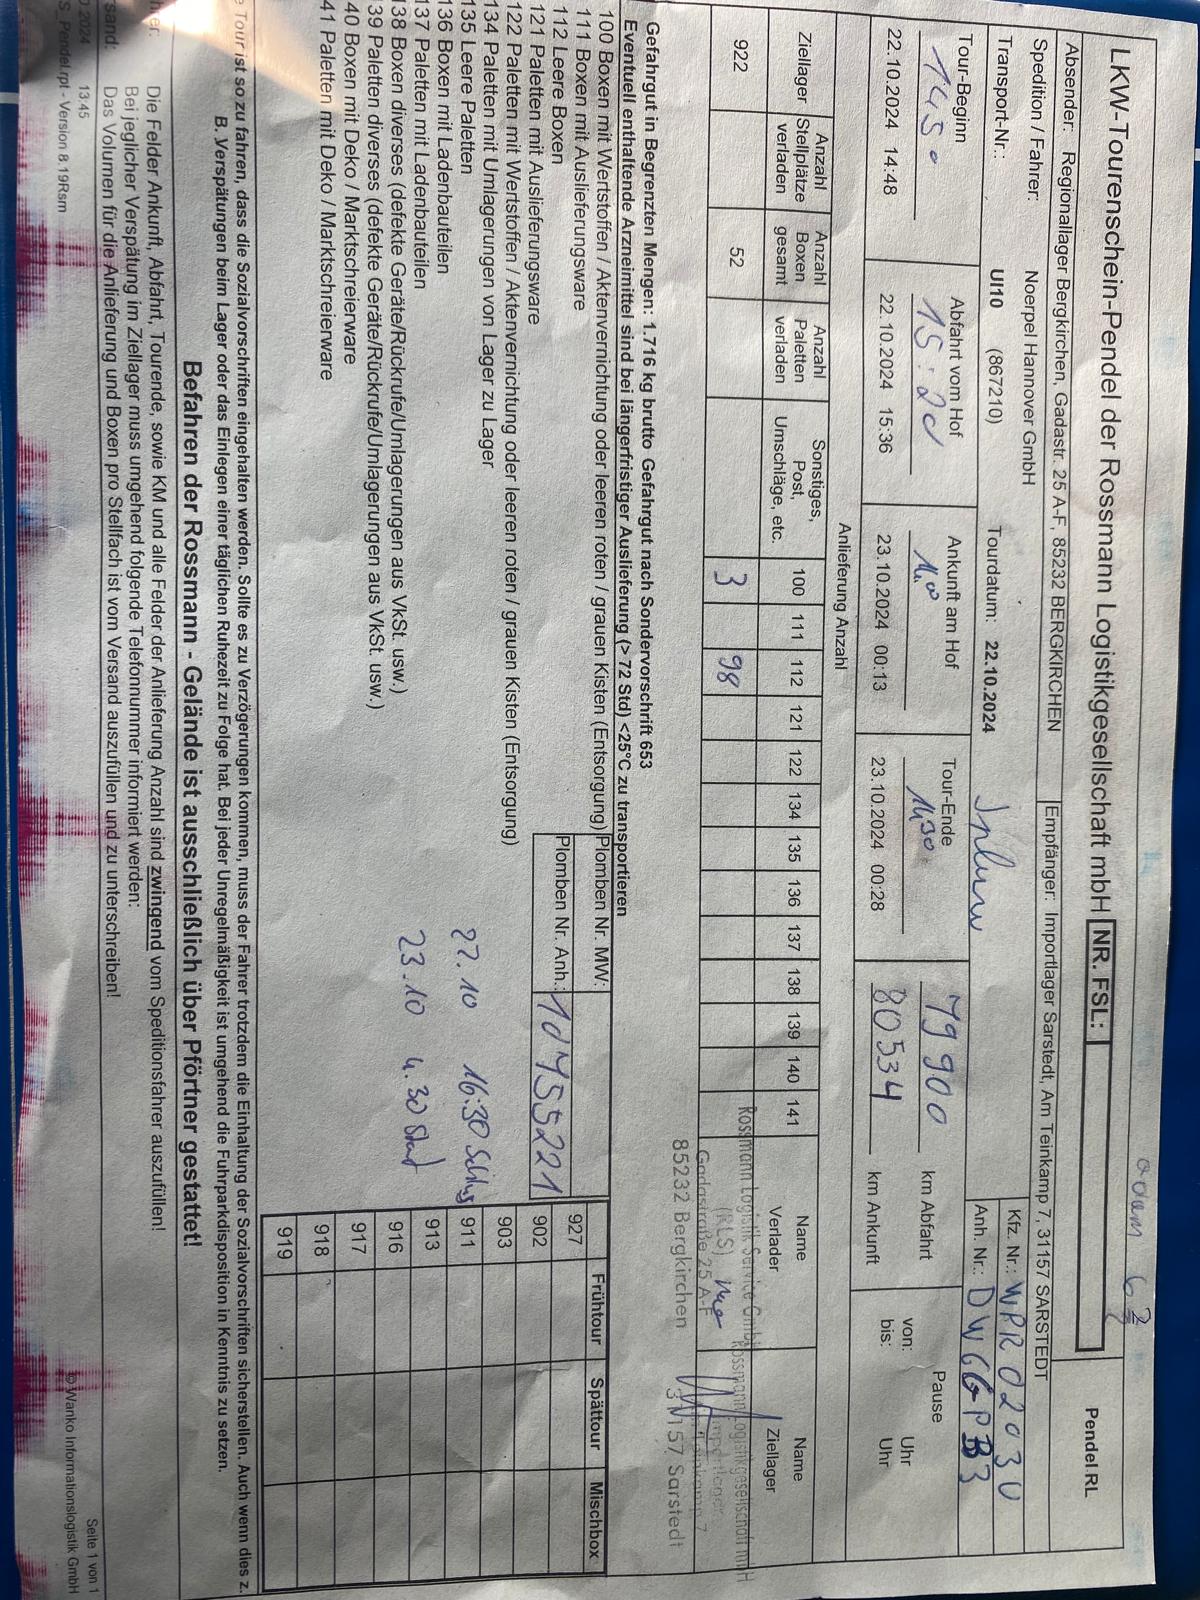 LKW-Tourenschein-Pendel der Rossmann Logistikgesellschaft mbH NR. FSL: Pendel RL
Absender: Regionallager Bergkirchen, Gadastr. 25 A-F, 85232 BERGKIRCHEN Empfänger: Importlager Sarstedt, Am Teinkamp 7, 31157 SARSTEDT
Spedition / Fahrer: Noerpel Hannover GmbH Kfz. Nr.: WPR 02030
Transport-Nr.: UI10 (867210) Tourdatum: 22.10.2024 Anh. Nr.:
Tour-Beginn Abfahrt vom Hof Ankunft am Hof Tour-Ende 79900 km Abfahrt Pause
1450 15:20 1430 von: Uhr
22.10.2024 14:48 22.10.2024 15:36 23.10.2024 00:13 23.10.2024 00:28 80534 km Ankunft bis: Uhr
Anlieferung Anzahl
Ziellager Anzahl Stellplätze verladen Anzahl Boxen gesamt Anzahl Paletten verladen Sonstiges, Post, Umschläge, etc. 100 111 112 121 122 134 135 136 137 138 139 140 141 Name Verlader Name Ziellager
922 52 3 98
Rossmann Logistik Service GmbH
(RLS)
Gadastraße 25 A-F
85232 Bergkirchen
Rossmann Logistikgesellschaft mbH
Importlager
31157 Sarstedt
Gefahrgut in Begrenzten Mengen: 1.716 kg brutto Gefahrgut nach Sondervorschrift 653
Eventuell enthaltende Arzneimittel sind bei längerfristiger Auslieferung (> 72 Std) <25°C zu transportieren
100 Boxen mit Wertstoffen / Aktenvernichtung oder leeren roten / grauen Kisten (Entsorgung)
111 Boxen mit Auslieferungsware
112 Leere Boxen
121 Paletten mit Auslieferungsware
122 Paletten mit Wertstoffen / Aktenvernichtung oder leeren roten / grauen Kisten (Entsorgung)
134 Paletten mit Umlagerungen von Lager zu Lager
135 Leere Paletten
136 Boxen mit Ladenbauteilen
137 Paletten mit Ladenbauteilen
138 Boxen diverses (defekte Geräte/Rückrufe/Umlagerungen aus VkSt. usw.)
139 Paletten diverses (defekte Geräte/Rückrufe/Umlagerungen aus VkSt. usw.)
40 Boxen mit Deko / Marktschreierware
41 Paletten mit Deko / Marktschreierware
Plomben Nr. MW:
Plomben Nr. Anh.:
22.10 16:30 Schluß
23.10 4.30 Start
Frühtour Spättour Mischbox
927
902
903
911
913
916
917
918
919
e Tour ist so zu fahren, dass die Sozialvorschriften eingehalten werden. Sollte es zu Verzögerungen kommen, muss der Fahrer trotzdem die Einhaltung der Sozialvorschriften sicherstellen. Auch wenn dies z.
B. Verspätungen beim Lager oder das Einlegen einer täglichen Ruhezeit zu Folge hat. Bei jeder Unregelmäßigkeit ist umgehend die Fuhrparkdisposition in Kenntnis zu setzen.
Befahren der Rossmann - Gelände ist ausschließlich über Pförtner gestattet!
Die Felder Ankunft, Abfahrt, Tourende, sowie KM und alle Felder der Anlieferung Anzahl sind zwingend vom Speditionsfahrer auszufüllen!
Bei jeglicher Verspätung im Ziellager muss umgehend folgende Telefonnummer informiert werden:
sand: Das Volumen für die Anlieferung und Boxen pro Stellfach ist vom Versand auszufüllen und zu unterschreiben!
2024 13:45 Seite 1 von 1
S_Pendel.rpt - Version 8.19Rsm © Wanko Informationslogistik GmbH